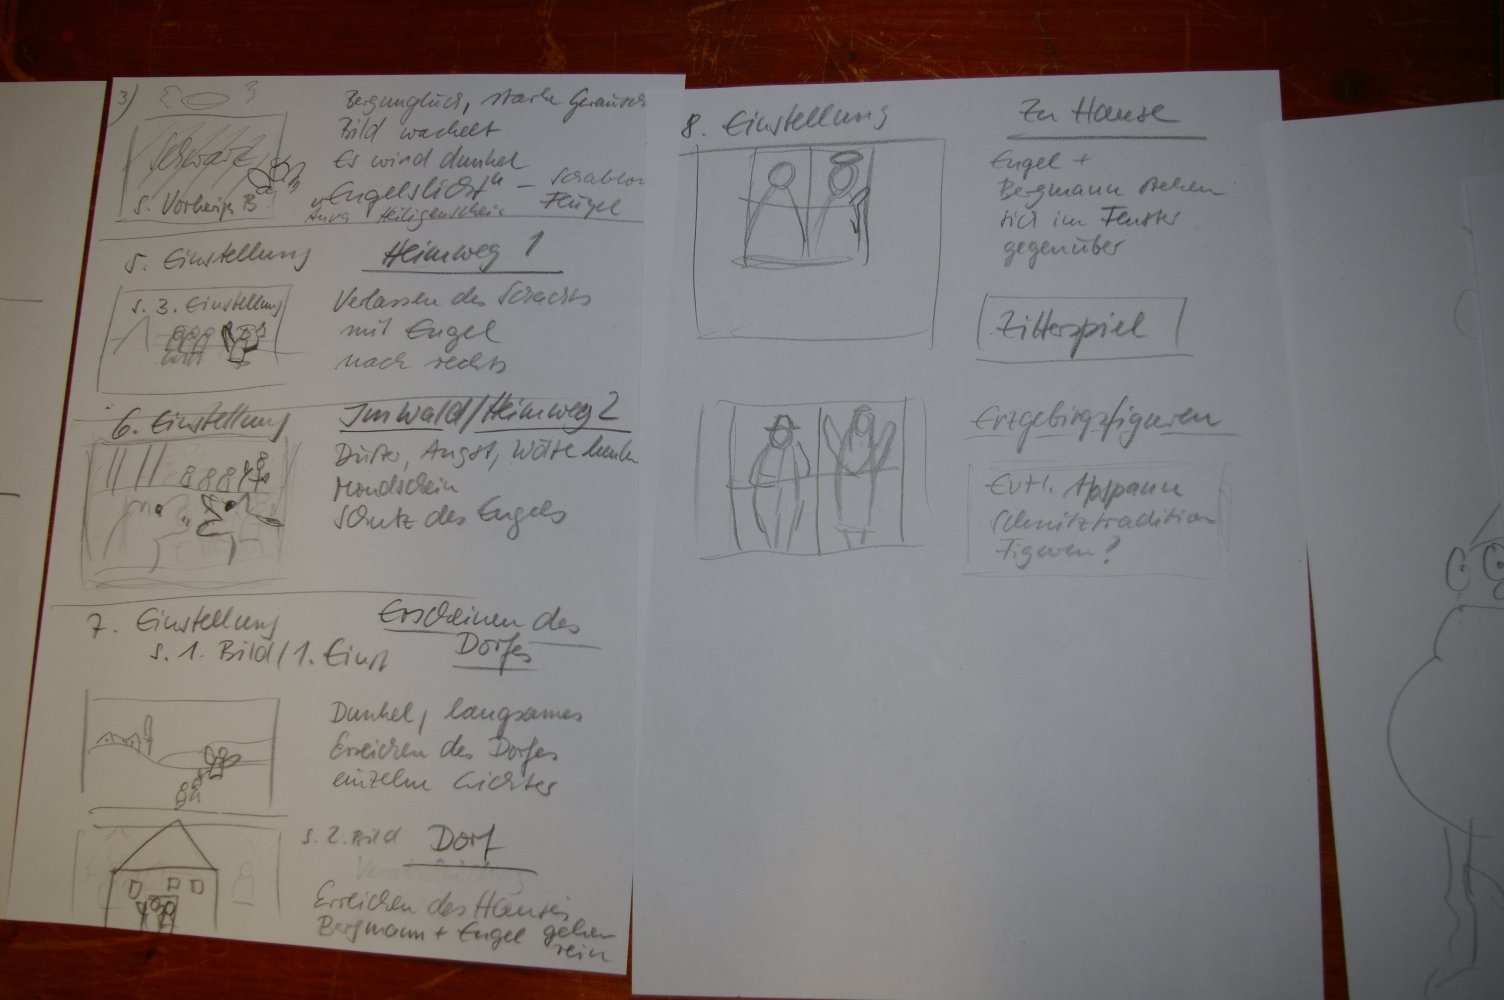 3)
Schwarz
s. Vorherig. B
Bergunglück, starke Geräusch
Bild wackelt
Es wird dunkel
"Engelslicht" –
Aura Heiligenschein Flügel
5. Einstellung Heimweg 1
s. 3. Einstellung
Verlassen des Schachts
mit Engel
nach rechts
6. Einstellung Im Wald/Heimweg 2
Düster, Angst, Wölfe heulen
Mondschein
Schutz des Engels
7. Einstellung Erscheinen des
Dorfes
s. 1. Bild/1. Einst
Dunkel, langsames
Erreichen des Dorfes
einzelne Lichter
s. 2. Bild Dorf
Erreichen des Hauses
Bergmann + Engel gehen
rein
8. Einstellung Zu Hause
Engel +
Bergmann stehen
sich im Fenster
gegenüber
Zitterspiel
Erzgebirgsfiguren
Evtl. Abspann
Schnitztradition
Figuren?